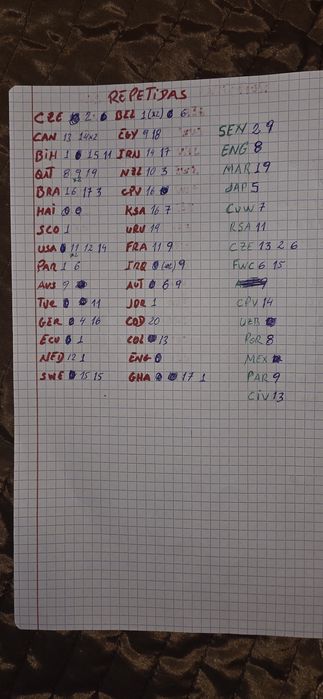 REPETIDAS
CZE 2 6
CAN 13 14x2
BIH 1 6 15 11
QAT 8 9 19
BRA 16 17 3
HAI
SCO 1
USA 11 12 14
PAR 1 6
AUS 9
TUR 11
GER 4 16
ECU 1
NED 12 1
SWE 15 15
BEL 1(x2) 6
EGY 9 18
IRN 14 17
NZL 10 3
CPV 16
KSA 16 7
URU 19
FRA 11 9
IRQ (x2) 9
AUT 6 9
JOR 1
COD 20
COL 13
ENG
GHA 17 1
SEN 2 9
ENG 8
MAR 19
JAP 5
CUW 7
RSA 11
CZE 13 2 6
FWC 6 15
CPV 14
UZB
POR 8
MEX
PAR 9
CIV 13